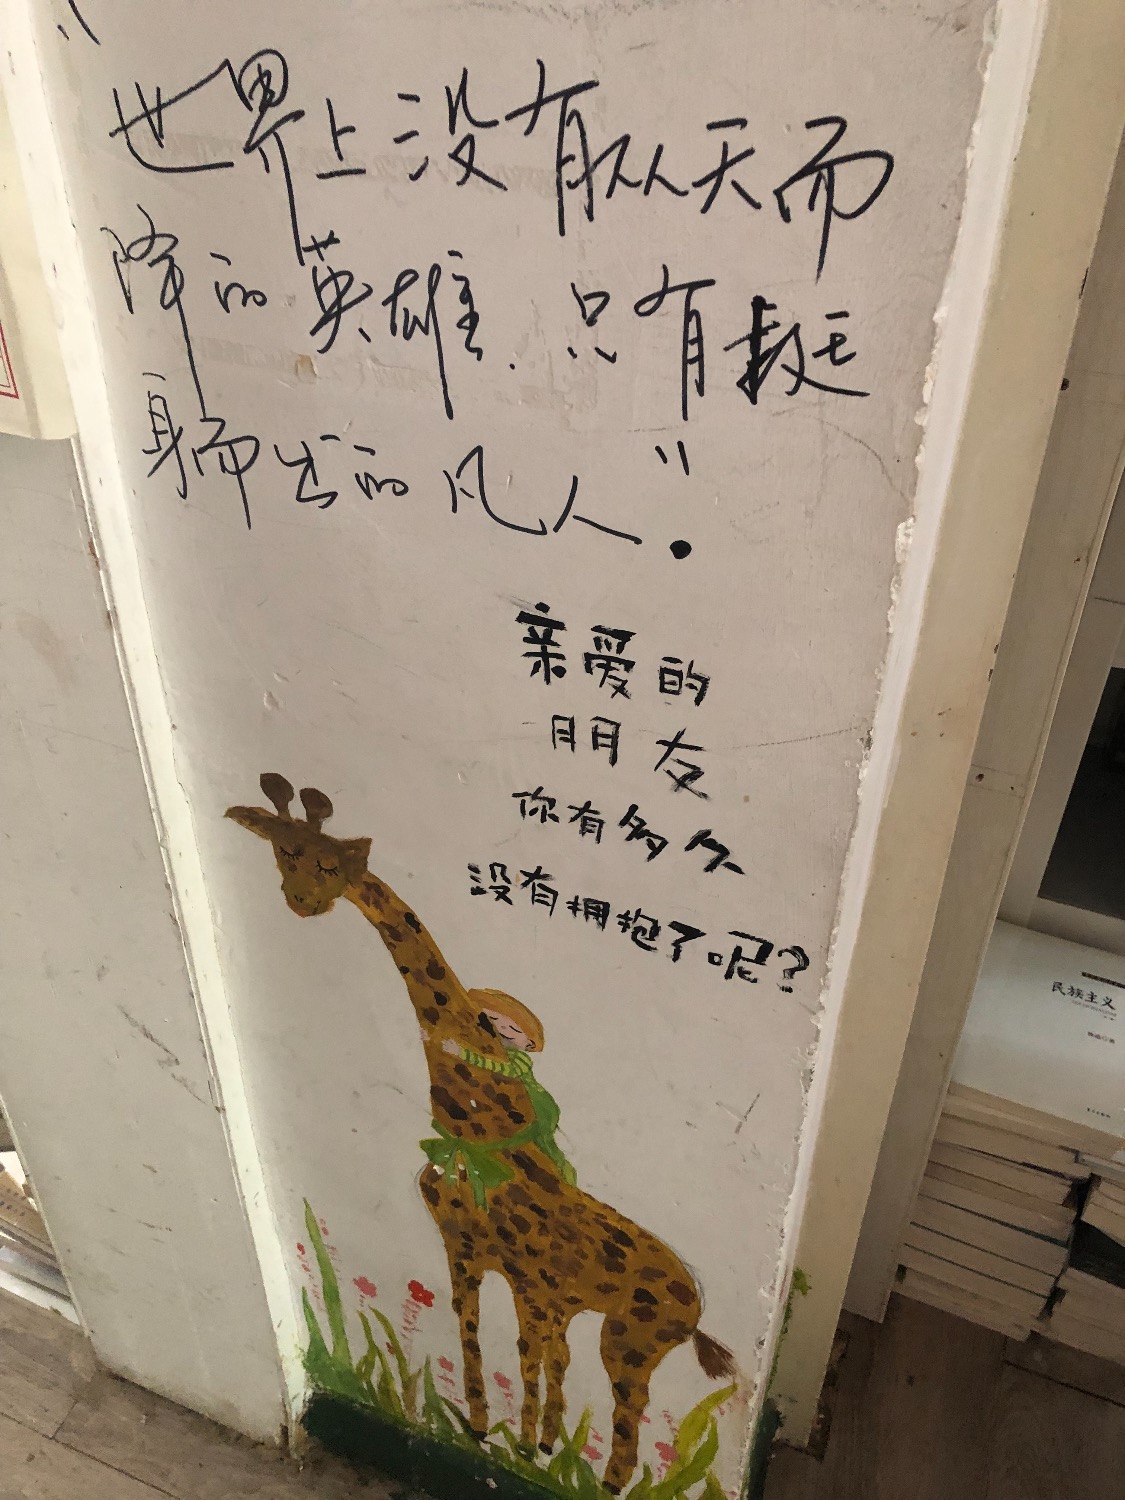 “世界上没有从天而
降的英雄.只有挺
身而出的凡人”.
亲爱的
朋友
你有多久
没有拥抱了呢?
民族主义